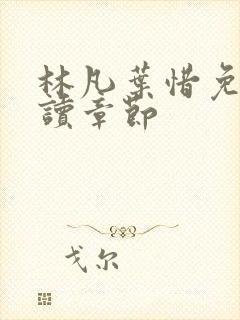 林凡葉惜免
讀章節
戈尔